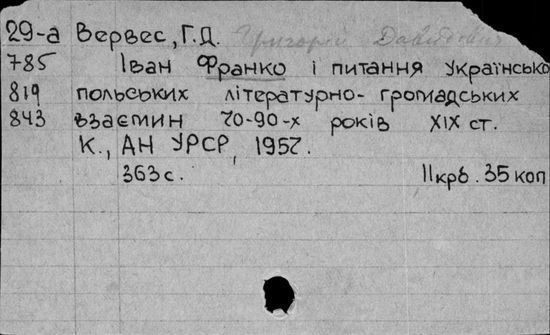 29-а Вервес, Г.Д. Григорій Давидович
785 Іван Франко і питання Українсько
819 польських літературно-громадських
843 взаємин 70-90-х років XIX ст.
К., АН УРСР, 1957.
363 с. 11 крб. 35 коп